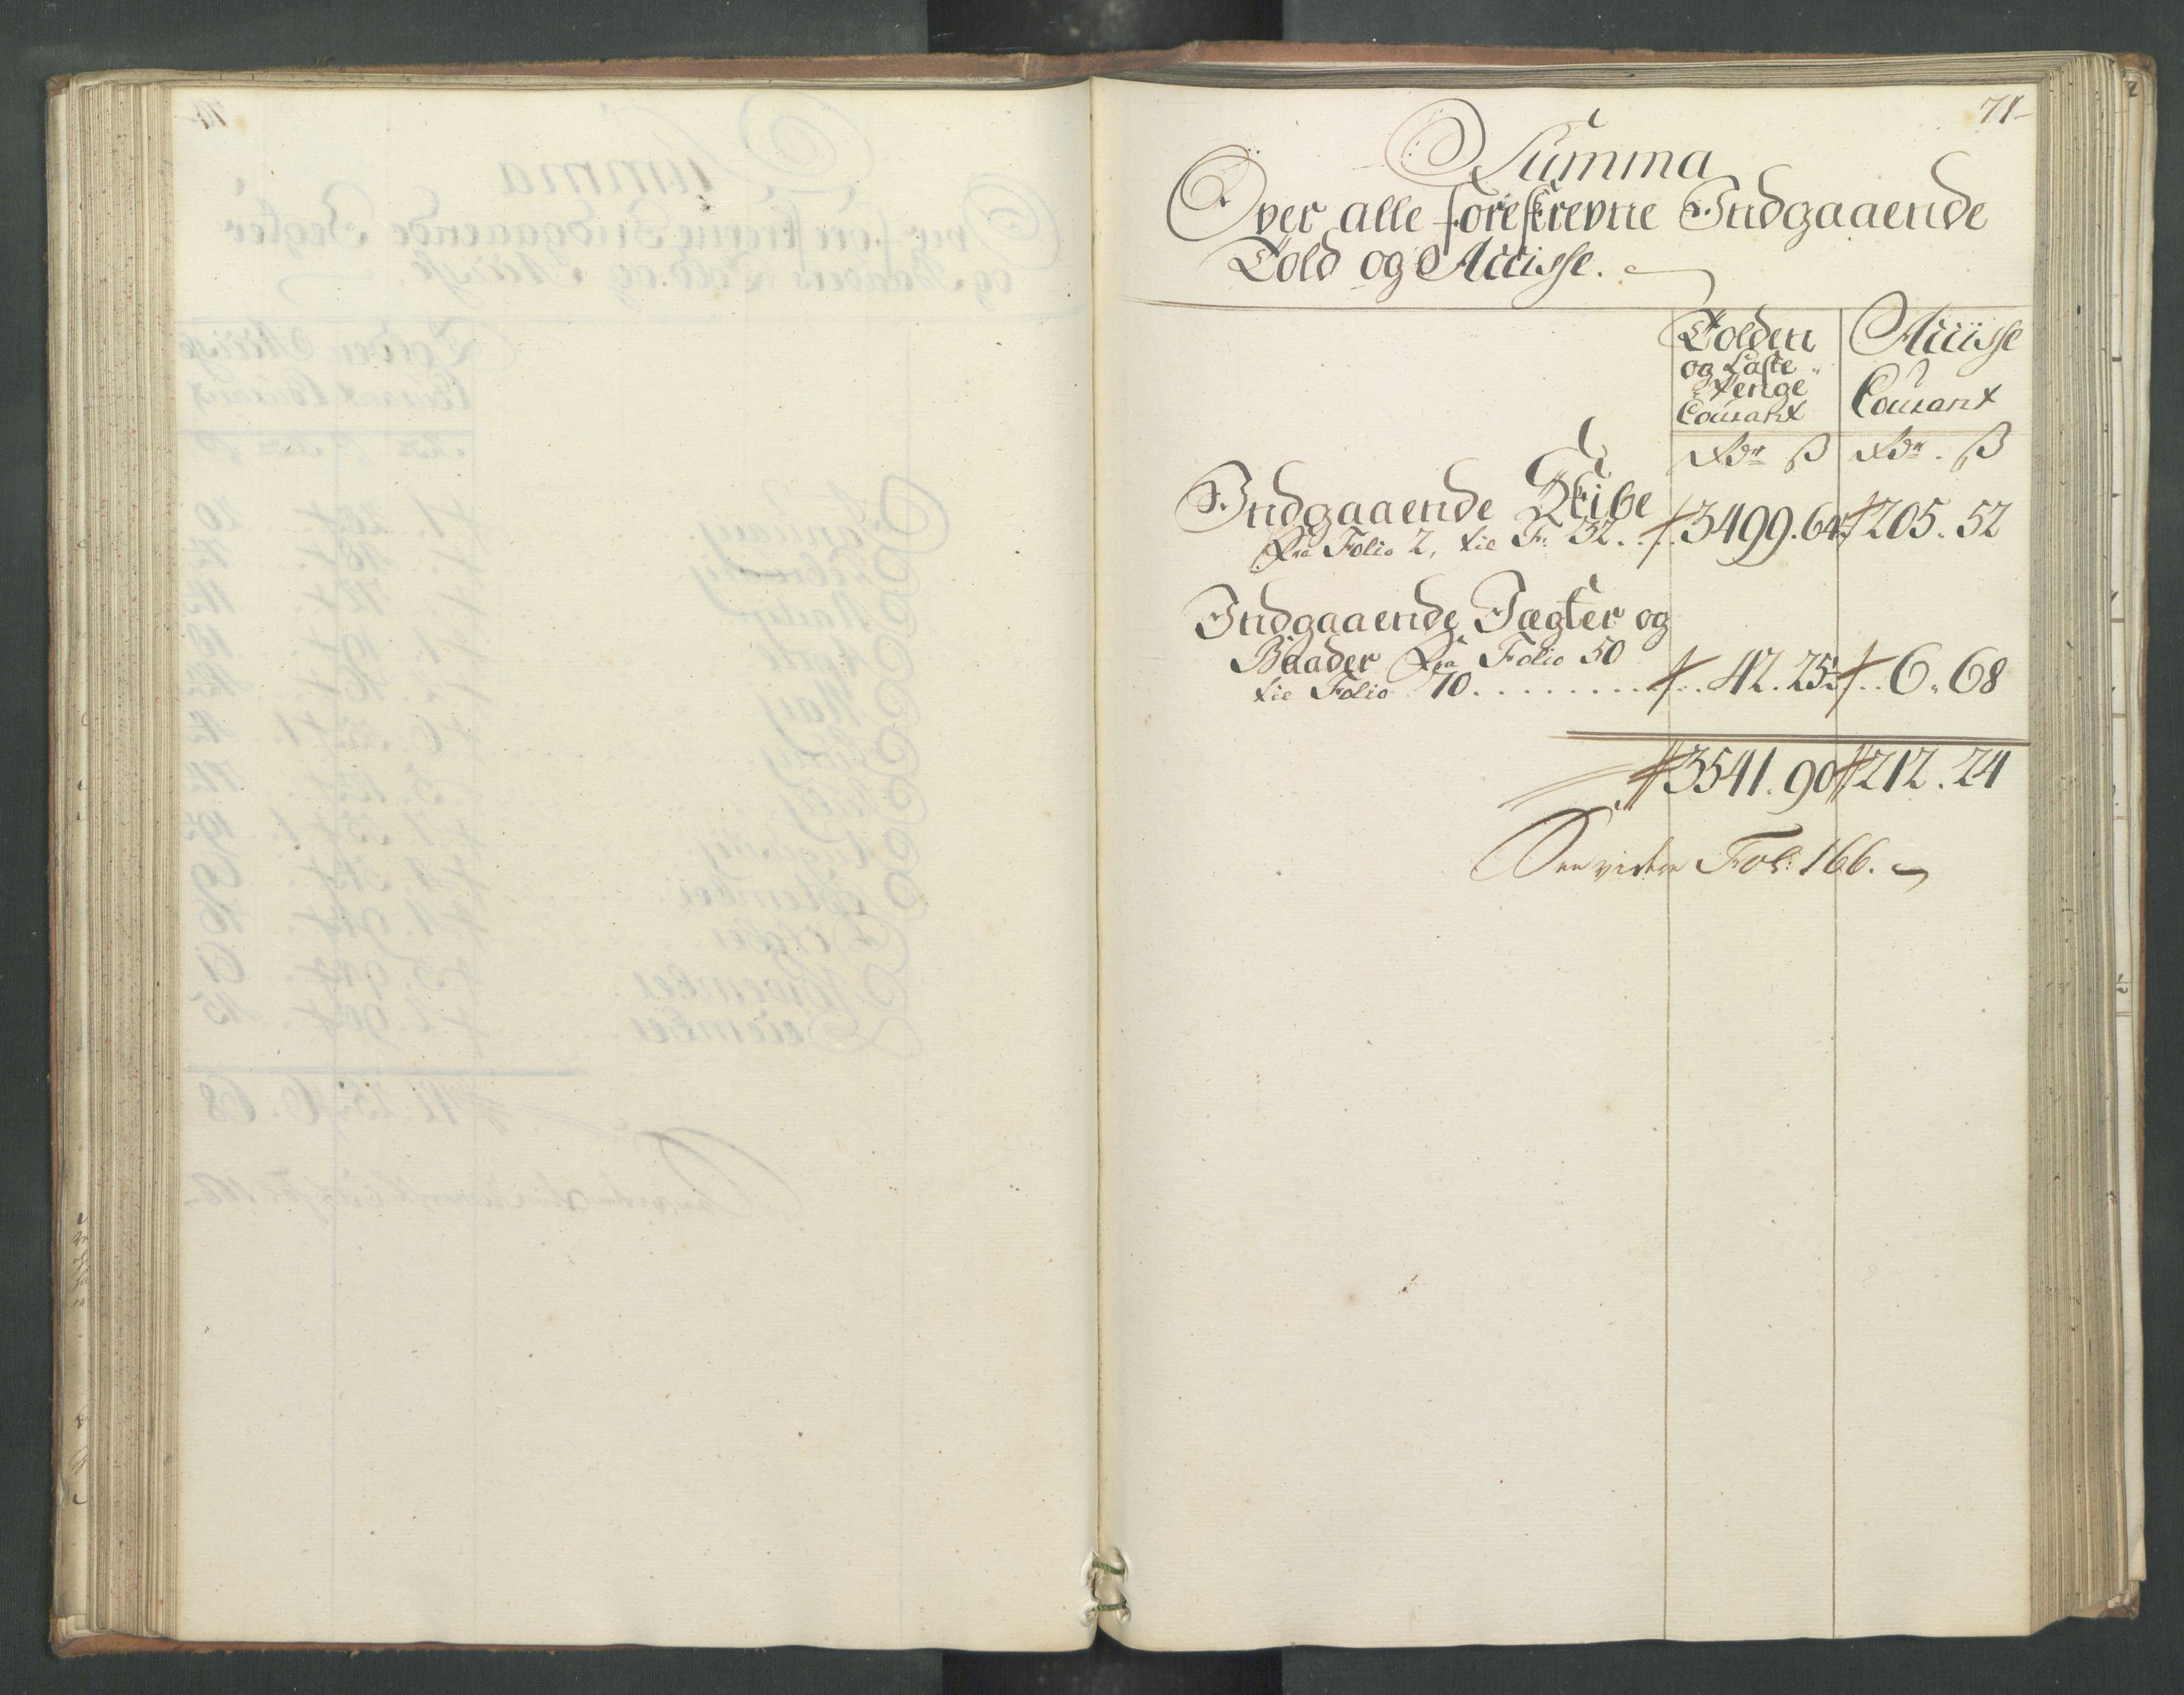 71
Summa
Over alle foreskrevne Indgaaende
Told og Accisse.
Tolden
og Laste
Penge
Courant
Accisse
Courant
Rdr ß Rdr. ß
Indgaaende Skibe
Fra Folio 2, til Fo: 32. 3499. 64 205. 52
Indgaaende Jægter og
Baader Fra Folio 50
til Folio 70. . . . . . . . . 42. 25 6. 68
3541. 90 212. 24
See videre Fol: 166.